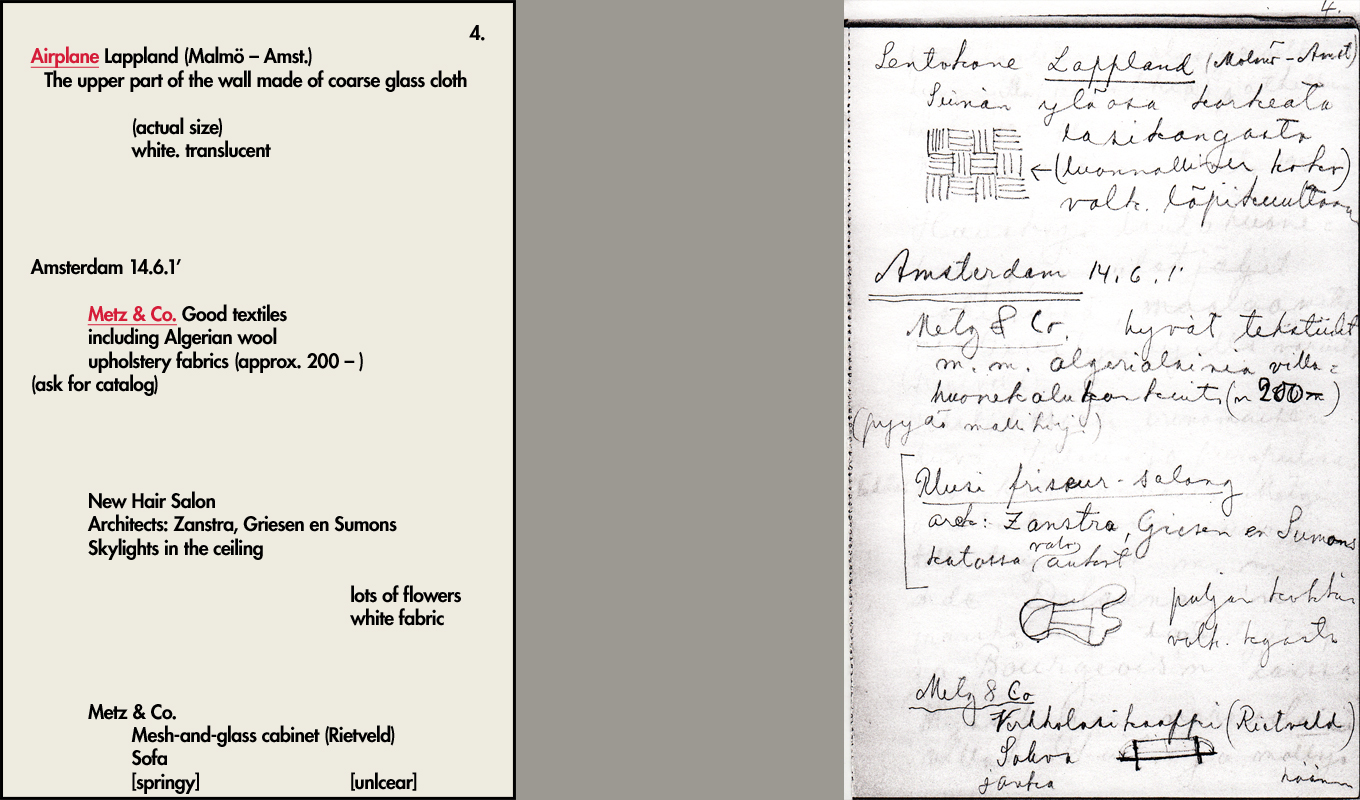 4.
Airplane Lappland (Malmö – Amst.)
The upper part of the wall made of coarse glass cloth
(actual size)
white. translucent
Amsterdam 14.6.1’
Metz & Co. Good textiles
including Algerian wool
upholstery fabrics (approx. 200 – )
(ask for catalog)
New Hair Salon
Architects: Zanstra, Griesen en Sumons
Skylights in the ceiling
lots of flowers
white fabric
Metz & Co.
Mesh-and-glass cabinet (Rietveld)
Sofa
[springy] [unlcear]
4.
Lentokone Lappland (Malmö – Amst)
Seinän yläosa karkeata
lasikangasta
←(luonnollinen koko)
valk. läpikuultava
Amsterdam 14.6.1'
Metz & Co. hyvät tekstiilit
m.m. algerialaisia villa=
huonekalukankaita (n 200–)
(pyydä mallikirj.)
Uusi friseur-salong
ark: Zanstra, Giesen en Sumons
katossa valo
aukot
paljon kukkia
valk. kgasta
Metz & Co
Verkkolasikaappi (Rietveld)
Sohva